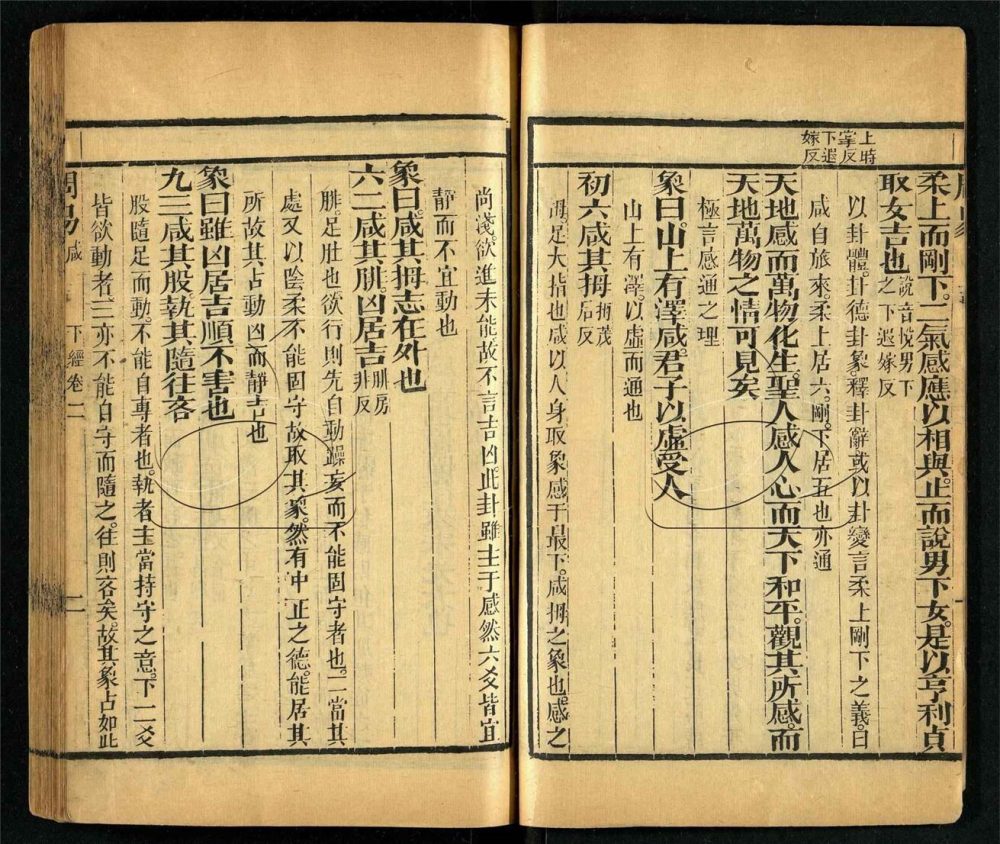 上時
掌反
下遐
嫁反
柔上而剛下。二氣感應以相與。止而說男下女。是以亨利貞
取女吉也
說音悅男下
之下遐嫁反
以卦體。卦德卦象。釋卦辭或以卦變言柔上剛下之義。曰
咸自旅來。柔上居六。剛下居五也亦通
天地感而萬物化生。聖人感人心而天下和平。觀其所感。而
天地萬物之情可見矣
極言感通之理
象曰。山上有澤咸。君子以虛受人
山上有澤。以虛而通也
初六咸其拇
拇茂
后反
拇。足大指也咸以人身取象感于最下。咸拇之象也。感之
尚淺。欲進未能故不言吉凶。此卦雖主于感然六爻皆宜
靜而不宜動也
象曰。咸其拇志在外也
六二咸其腓凶居吉
腓房
非反
腓。足肚也欲行則先自動躁妄而不能固守者也。二當其
處又以陰柔不能固守故取其象。然有中正之德。能居其
所故其占動凶而靜吉也
象曰雖凶居吉順不害也
九三咸其股執其隨往吝
股隨足而動。不能自專者也。執者主當持守之意。下二爻
皆欲動者。三亦不能自守而隨之。往則吝矣。故其象占如此
周易
咸
下經卷二
二